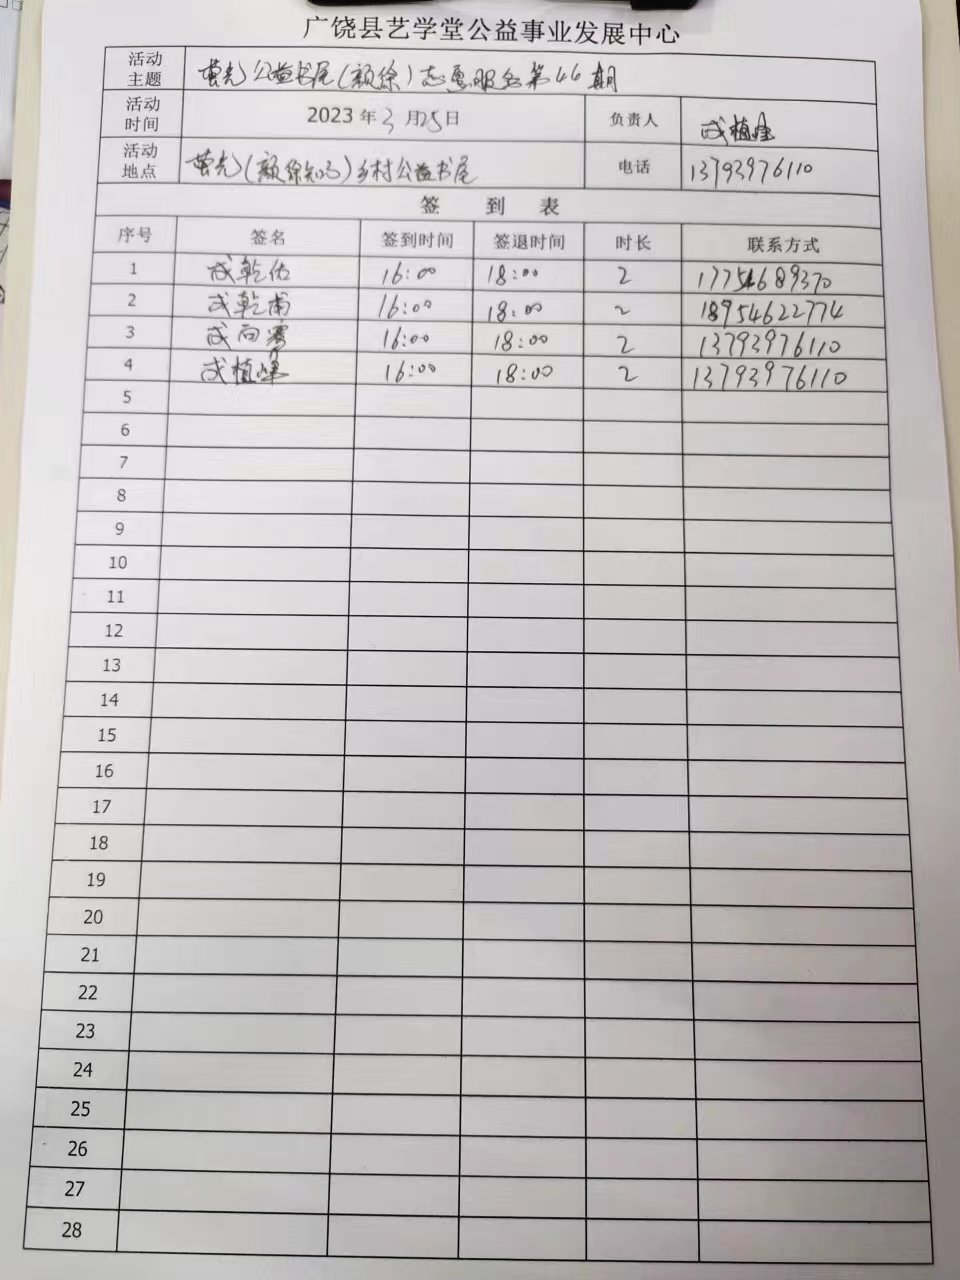 广饶县艺学堂公益事业发展中心
活动主题 萤光公益书屋(颜徐)志愿服务第46期
活动时间 2023年3月25日 负责人 成植峰
活动地点 萤光(颜徐知、)乡村公益书屋 电话 13793976110
签 到 表
序号 签名 签到时间 签退时间 时长 联系方式
1 成乾佑 16:00 18:00 2 17754689370
2 成乾甫 16:00 18:00 2 18954622774
3 成向 16:00 18:00 2 13793976110
4 成植峰 16:00 18:00 2 13793976110
5
6
7
8
9
10
11
12
13
14
15
16
17
18
19
20
21
22
23
24
25
26
27
28